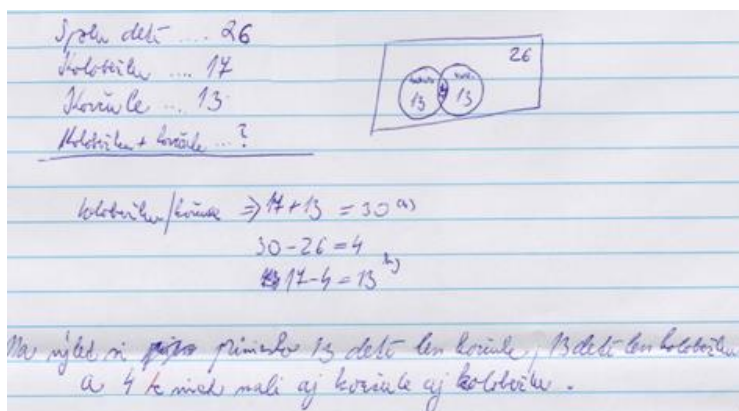 Spolu detí .... 26
Kolobežku .... 17
Korčule ... 13
Kolobežku + korčule ...?
26
13 4 13
kolobežku/korčule ⇒ 17+13 = 30 a)
30-26=4
17-4=13 b)
Na výlet si prinieslo 13 detí len korčule, 13 detí len kolobežku
a 4 z nich mali aj korčule aj kolobežku.